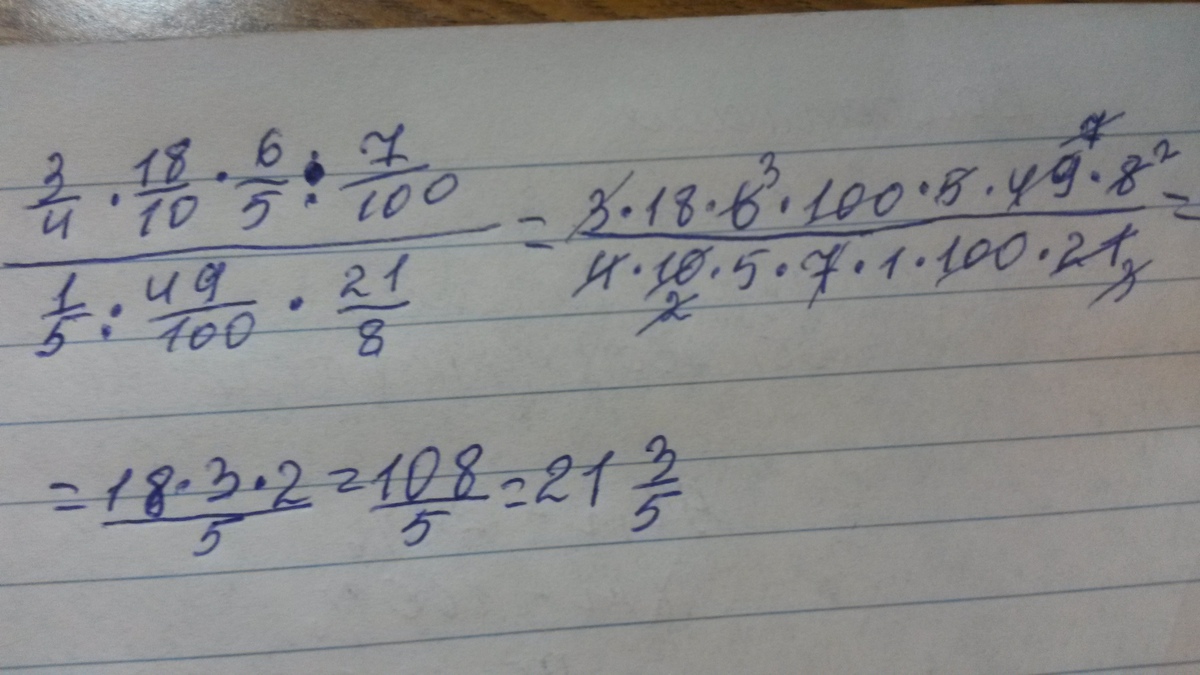 3/4 · 18/10 · 6/5 : 7/100
1/5 : 49/100 · 21/8
= 3·18·6·100·5·49·8 / 4·10·5·7·1·100·21 =
3 7 2
2 3
= 18·3·2/5 = 108/5 = 21 3/5